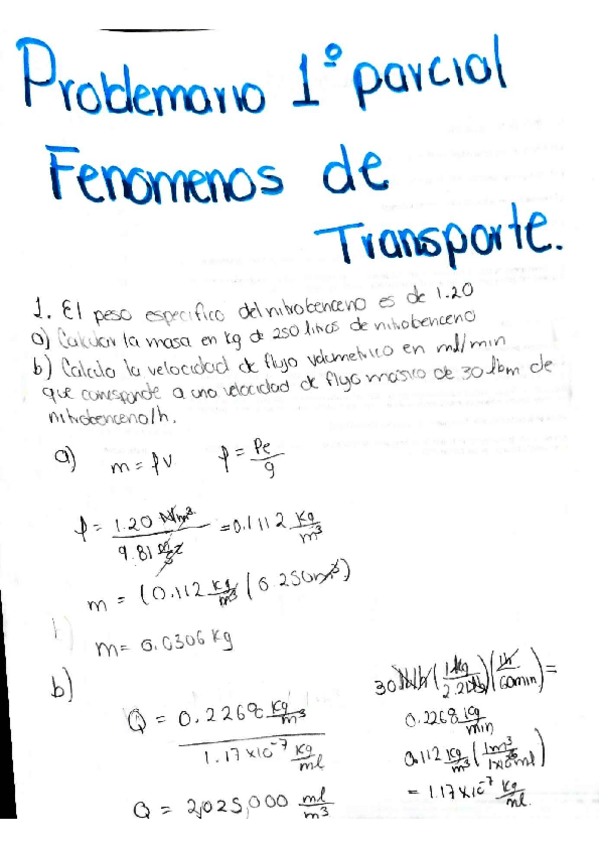 Problemario 1º parcial
Fenomenos de
Transporte.
1. El peso especifico del nitrobenceno es de 1.20
a) Calcular la masa en kg de 250 litros de nitrobenceno
b) Calcula la velocidad de flujo volumetrico en ml/min
que corresponde a una velocidad de flujo masico de 30 lbm de
nitrobenceno/h.
a) m = ρv ρ = Pe/g
ρ = 1.20 N/m³ / 9.81 m/s² = 0.1112 kg/m³
m = (0.112 kg/m³ (0.250m³)
m = 0.0306 kg
b)
30 lb/h (1kg/2.2lb)(1h/60min) =
0.2268 kg/min
Q = 0.2268 kg/m³ / 1.17x10⁻⁷ kg/ml
0.112 kg/m³ (1m³/ml)
= 1.17x10⁻⁷ kg/ml.
Q = 2,025,000 ml/m³